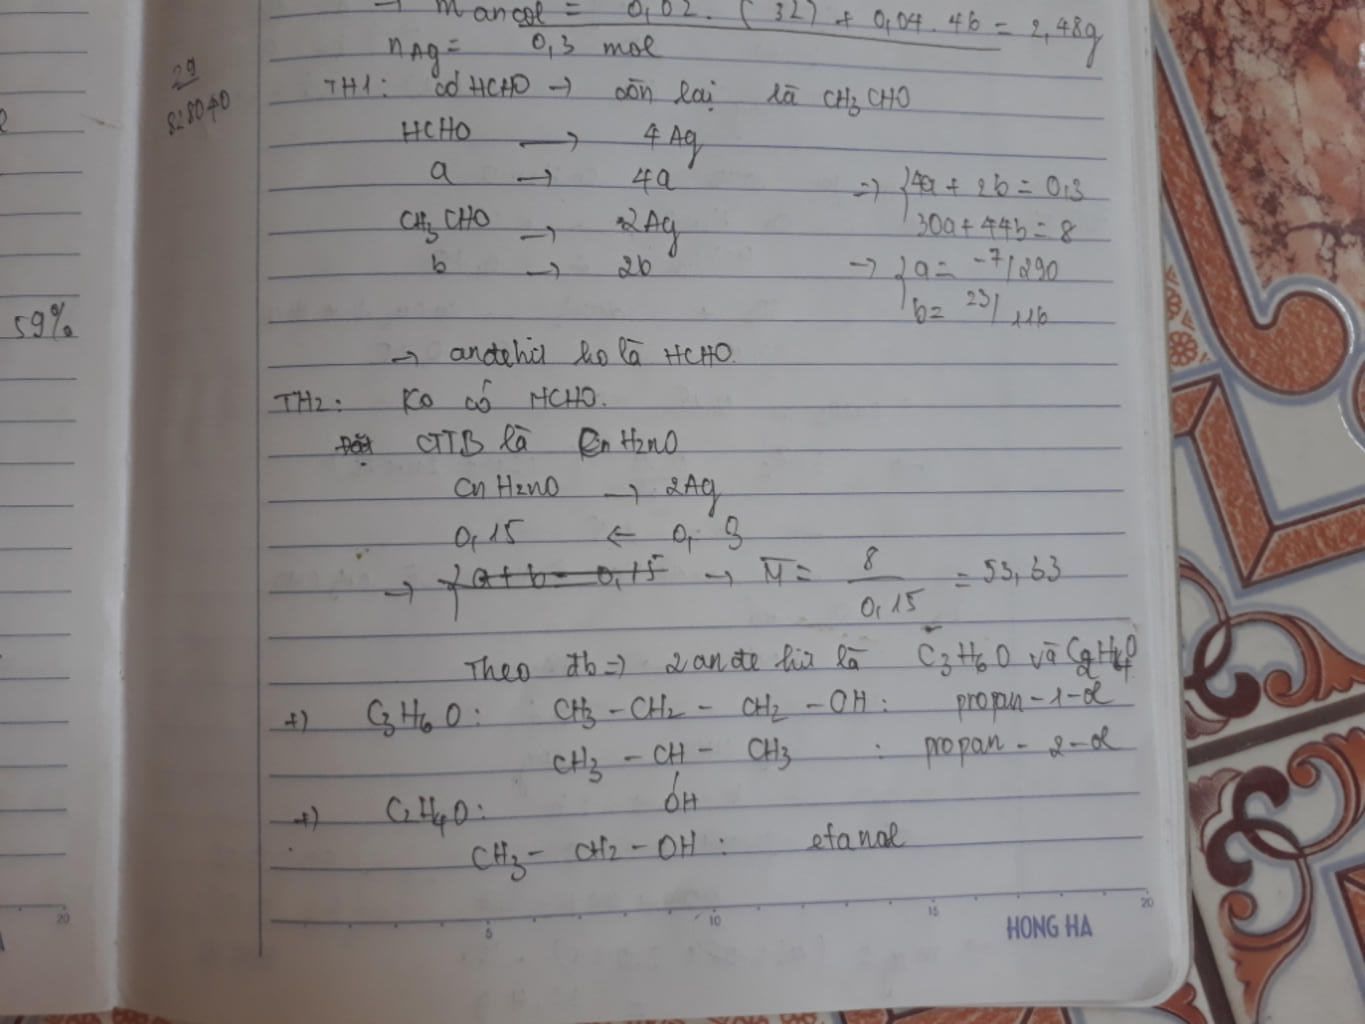 → m ancol = 0,02. (32) + 0,04. 46 = 2,48g
nAg = 0,3 mol
29
828040
TH1: có HCHO → còn lại là CH3CHO
HCHO → 4Ag
a → 4a => {4a + 2b = 0,3
CH3CHO → 2Ag 30a + 44b = 8
b → 2b → {a = -7/290
b = 23/116
59%
→ andehit ko là HCHO.
TH2: Ko có HCHO.
Đặt CTTB là CnH2nO
CnH2nO → 2Ag
0,15 ← 0,3
→ {a + b = 0,15 → M = 8/0,15 = 53,33
Theo đb => 2 andehit là C3H6O và C2H4O
+) C3H6O: CH3 - CH2 - CH2 - OH: propan - 1 - ol
CH3 - CH - CH3 : propan - 2 - ol
OH
+) C2H4O:
CH3 - CH2 - OH: etanol
20
5 10 15 20
HONG HA